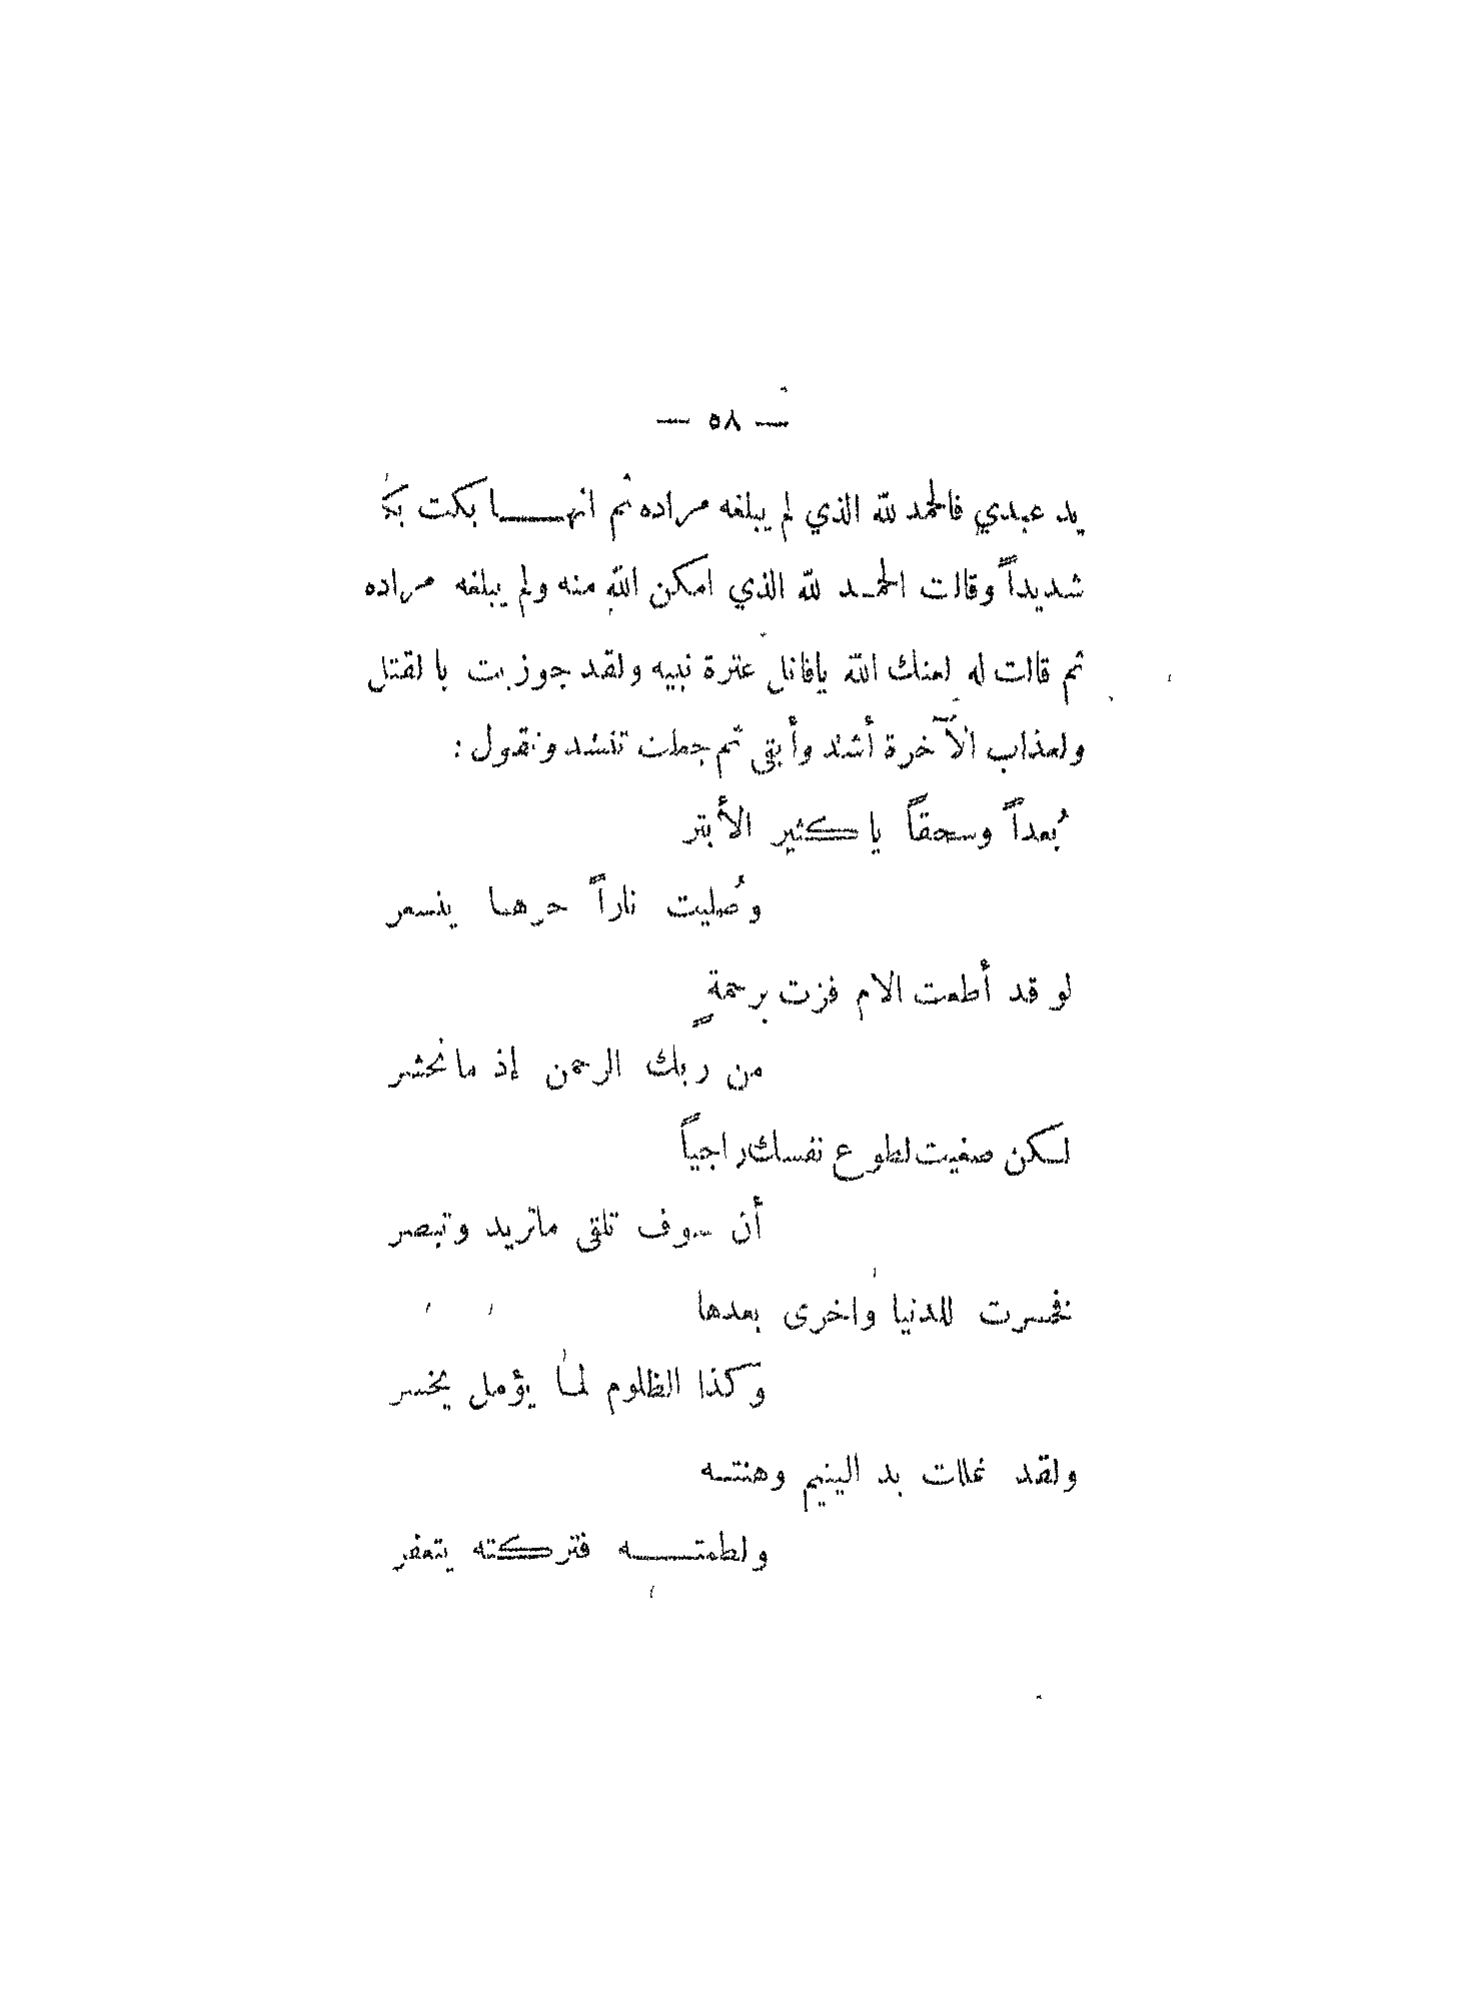 — ٥٨ —
يد عبدي فالحمد لله الذي لم يبلغه مراده ثم انهـــا بكت بكا
شديداً وقالت الحمـد لله الذي امكن الله منه ولم يبلغه مراده
ثم قالت له لعنك الله ياقاتل عترة نبيه ولقد جوزيت بالقتل
ولعذاب الآخرة أشد وأبقى ثم جعلت تنشد وتقول :
بُعداً وسحقاً يا كثير الأبتر
وصُليت ناراً حرهـا يتسعر
لو قد أطعت الام فزت برحمةٍ
من ربك الرحمن إذ ما نحشر
لـكن صغيت لطوع نفسك راجياً
أن سوف تلقى ماتريد وتبصر
فخسرت للدنيا واخرى بعدها
وكذا الظلوم لمـا يؤمل يخسر
ولقد غللت يد اليتيم وهنتـه
ولطمتـــه فتركته يتعفر